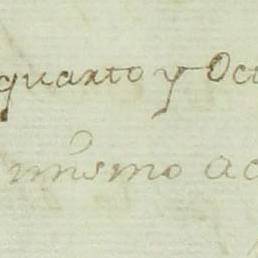 quarto y Oct
mismo ac